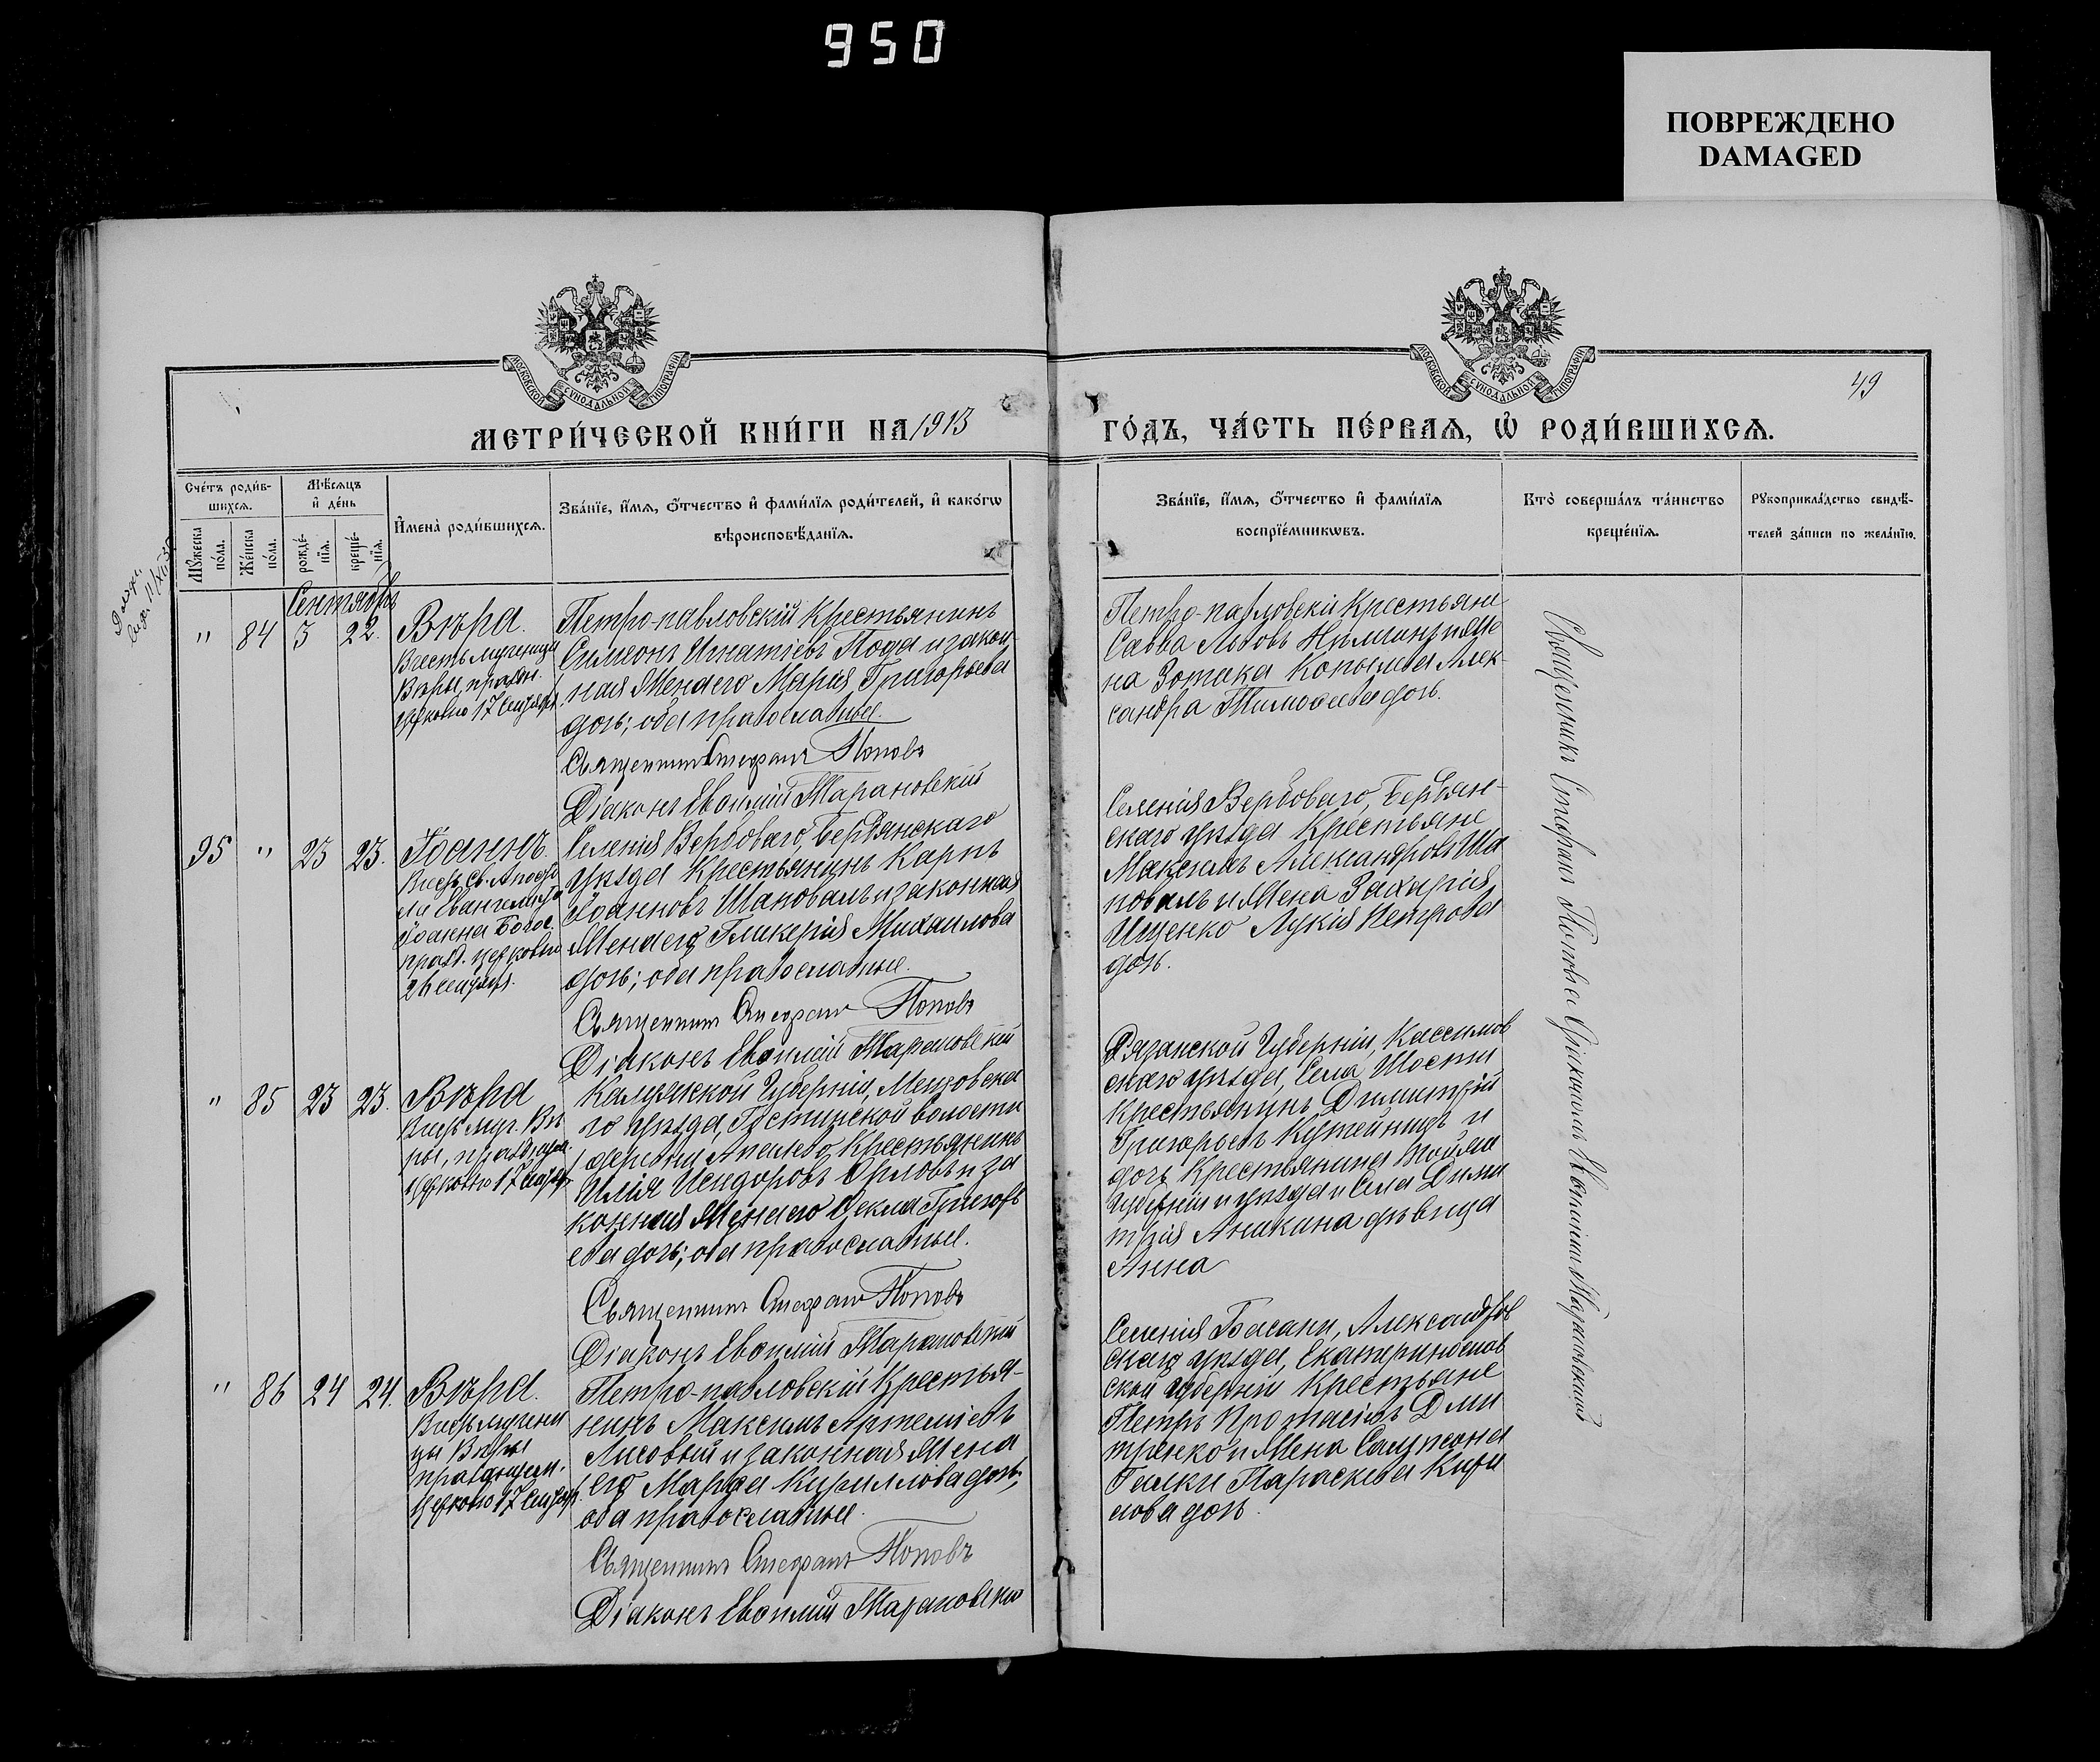 950
ПОВРЕЖДЕНО
DAMAGED
МОСКОВСКОЙ СѴНОДАЛЬНОЙ ТИПОГРАФІИ
МОСКОВСКОЙ СѴНОДАЛЬНОЙ ТИПОГРАФІИ
49
МЕТРИ́ЧЕСКОЙ КНИ́ГИ НА 1913
ГО́ДЪ, ЧА́СТЬ ПЕ́РВАѦ, Ѡ҆ РОДИ́ВШИХСѦ.
Сче́тъ роди́в-
шихсѧ.
Мꙋжеска
по́ла.
Же́нска
по́ла.
Мѣ́сѧцъ
и҆ де́нь
рожде́-
нїѧ.
креще́-
нїѧ.
И҆мена̀ роди́вшихсѧ.
Зва́нїе, и҆́мѧ, ѻ҆́тчество и҆ фами́лїѧ роди́телей, и҆ како́гѡ
вѣроисповѣ́данїѧ.
Зва́нїе, и҆́мѧ, ѻ҆́тчество и҆ фами́лїѧ
воспрїе́мникѡвъ.
Кто̀ соверша́лъ та́инство
креще́нїѧ.
Рꙋкоприкла́дство свидѣ́-
телей за́писи по жела́нїю.
Сентябрь
" 84 3 22. Вѣра.
Вчесть мученицы
Вѣры, праздн.
церковію 17 Сентяб.
Петро-павловскій Крестьянинъ
Симеонъ Игнатіевъ Пода и закон-
ная Жена его Марія Григорьева
дочь; оба православные.
Священникъ Стефанъ Поповъ
Діаконъ Евѳимій Марановскій
Петро-павловскіи Крестьяне
Савва Львовъ и Же
на Зотика Копылова Алек-
сандра Тимоѳеева дочь.
95 " 23 23. Іоаннъ.
Вчесть Св. Апосто
ла Евангелиста
Іоанна Богос.
празд. церковію
26 сентября.
Селенія Вербоваго, Бердянскаго
уѣзда Крестьянинъ Карпъ
Іоанновъ Шаповалъ и законная
Жена его Гликерія Михаилова
дочь; оба православные.
Священникъ Стефанъ Поповъ
Діаконъ Евѳимій Марановскій
Селенія Вербоваго, Бердян-
скаго уѣзда Крестьяне
Максимъ Александровъ Ша
повалъ и Жена Захарія
Ищенко Лукія Петрова
дочь.
" 85 23 23. Вѣра
Вчесть муч. Вѣ
ры, празднуем.
церковію 17 Сентяб.
Калужской Губерніи, Мещовска
го уѣзда, волости
деревни Крестьянинъ
Илія Исидоровъ Орловъ и за
конная Жена его Ѳекла Григорь
ева дочь; оба православные.
Священникъ Стефанъ Поповъ
Діаконъ Евѳимій Марановскій
Рязанской Губерніи, Касимов
скаго уѣзда, Села Шости
Крестьянинъ Димитрій
Григорьевъ и
дочь Крестьянина той же
Губерніи и уѣзда и Села Дими
трія Аникина дѣвица
Анна
" 86 24 24. Вѣра.
Вчесть мучени
цы Вѣры
празднуем.
Церковію 17 Сентяб.
Петро-павловскій Крестья-
нинъ Максимъ Артеміевъ
Лисовый и законная Жена
его Марѳа Кириллова дочь;
оба православные.
Священникъ Стефанъ Поповъ
Діаконъ Евѳимій Марановскій
Селенія Басани, Александров
скаго уѣзда, Екатеринослав
ской губерніи Крестьяне
Петръ Протасіевъ Дми
тренко и Жена Сампсона
Галки Параскева Кири
лова дочь.
Священникъ Стефанъ Поповъ съ Діакономъ Евѳиміемъ Марановскимъ